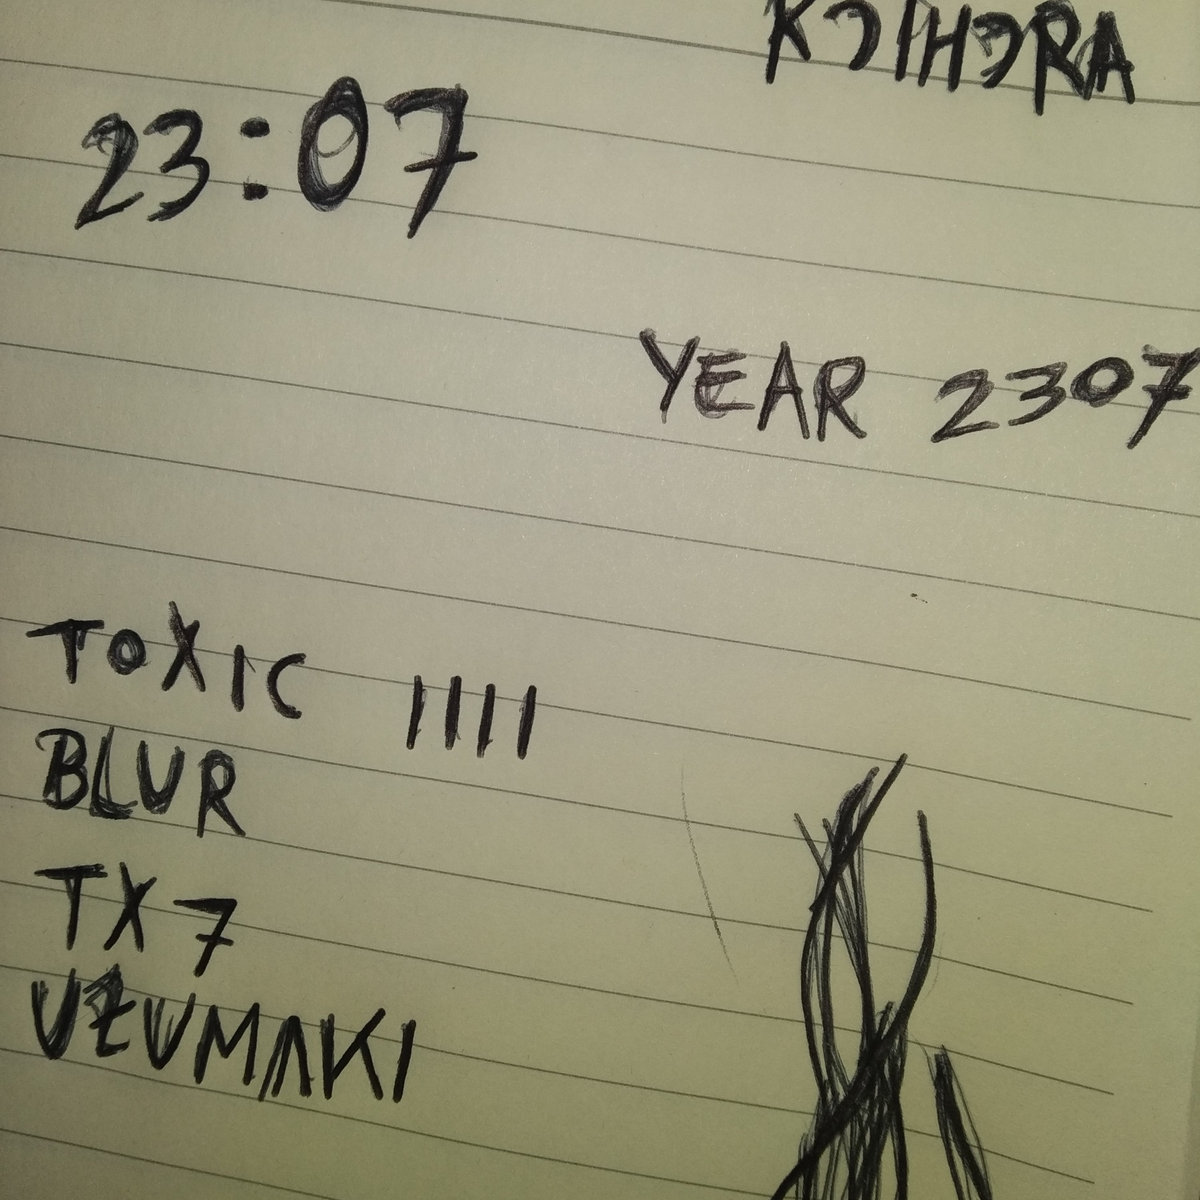 23:07
YEAR 2307
TOXIC ||||
BLUR
TX7
UZUMAKI